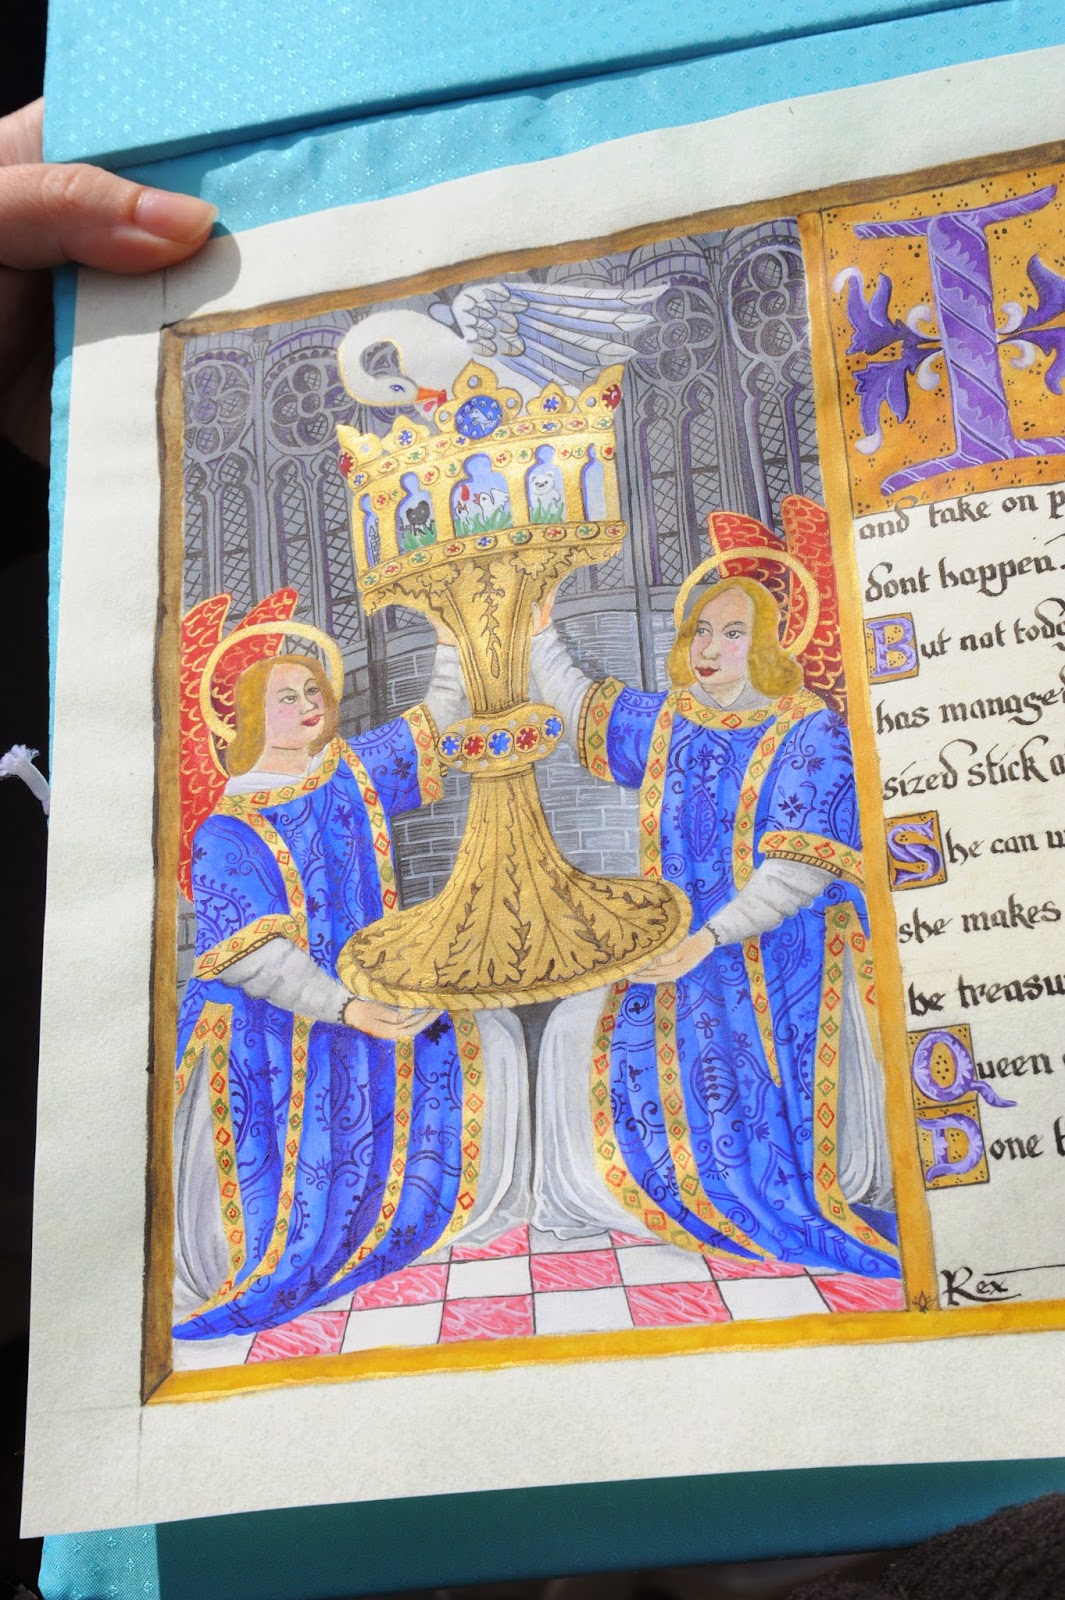 I
and take on p
dont happen.
But not toda
has managed
sized stick a
She can w
she makes
be treasu
Queen
Done t
Rex